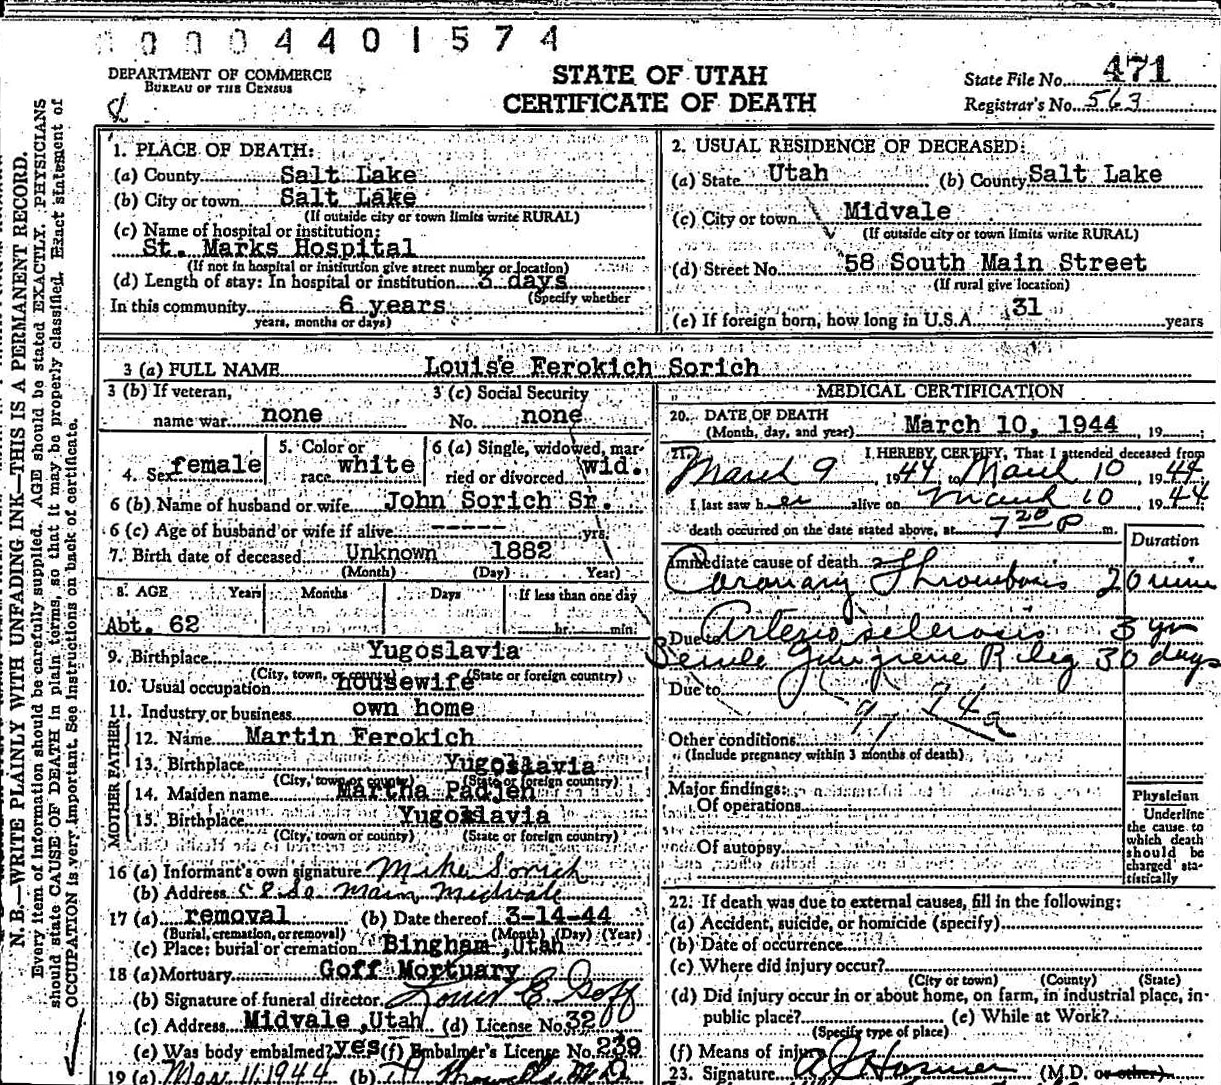 0 0 0 4 4 0 1 5 7 4
DEPARTMENT OF COMMERCE
BUREAU OF THE CENSUS
STATE OF UTAH
CERTIFICATE OF DEATH
State File No. 471
Registrar's No. 563
N. B.—WRITE PLAINLY WITH UNFADING INK—THIS IS A PERMANENT RECORD.
Every item of information should be carefully supplied. AGE should be stated EXACTLY. PHYSICIANS
should state CAUSE OF DEATH in plain terms, so that it may be properly classified. Exact statement of
OCCUPATION is very important. See instructions on back of certificate.
1. PLACE OF DEATH:
(a) County Salt Lake
(b) City or town Salt Lake
(If outside city or town limits write RURAL)
(c) Name of hospital or institution:
St. Marks Hospital
(If not in hospital or institution give street number or location)
(d) Length of stay: In hospital or institution 3 days
(Specify whether
In this community 6 years
years, months or days)
2. USUAL RESIDENCE OF DECEASED:
(a) State Utah (b) County Salt Lake
(c) City or town Midvale
(If outside city or town limits write RURAL)
(d) Street No. 58 South Main Street
(If rural give location)
(e) If foreign born, how long in U.S.A. 31 years
3 (a) FULL NAME Louise Ferokich Sorich
3 (b) If veteran,
name war none
3 (c) Social Security
No. none
4. Sex female
5. Color or
race white
6 (a) Single, widowed, mar-
ried or divorced wid.
6 (b) Name of husband or wife John Sorich Sr.
6 (c) Age of husband or wife if alive ----- yrs.
7. Birth date of deceased Unknown 1882
(Month) (Day) Year)
8. AGE Years Months Days If less than one day
Abt. 62 hr. min.
9. Birthplace Yugoslavia
(City, town, or county) (State or foreign country)
10. Usual occupation housewife
11. Industry or business own home
FATHER
12. Name Martin Ferokich
13. Birthplace Yugoslavia
(City, town or county) (State or foreign country)
MOTHER
14. Maiden name Martha Padjen
15. Birthplace Yugoslavia
(City, town or county) (State or foreign country)
16 (a) Informant's own signature Mike Sorich
(b) Address 58 So Main Midvale
17 (a) removal (b) Date thereof 3-14-44
(Burial, cremation, or removal) (Month) (Day) (Year)
(c) Place: burial or cremation Bingham, Utah
18 (a) Mortuary Goff Mortuary
(b) Signature of funeral director Louis E Goff
(c) Address Midvale, Utah (d) License No. 32
(e) Was body embalmed? yes (f) Embalmer's License No. 239
19 (a) Mar 11, 1944 (b) M.D.
MEDICAL CERTIFICATION
20. DATE OF DEATH
(Month, day, and year) March 10, 1944, 19
21. I HEREBY CERTIFY, That I attended deceased from
March 9, 1944 to March 10, 1944
I last saw her alive on March 10, 1944
death occurred on the date stated above, at 7 20 P m.
Duration
Immediate cause of death
Coronary Thrombosis 20 min
Due to Arteriosclerosis 3 yrs
Senile Gangrene R leg 30 days
Due to
97 94a
Other conditions
(Include pregnancy within 3 months of death)
Major findings:
Of operations
Of autopsy
Physician
Underline
the cause to
which death
should be
charged sta-
tistically
22. If death was due to external causes, fill in the following:
(a) Accident, suicide, or homicide (specify)
(b) Date of occurrence
(c) Where did injury occur?
(City or town) (County) (State)
(d) Did injury occur in or about home, on farm, in industrial place, in-
public place? (e) While at Work?
(Specify type of place)
(f) Means of injury
23. Signature (M.D. or other)